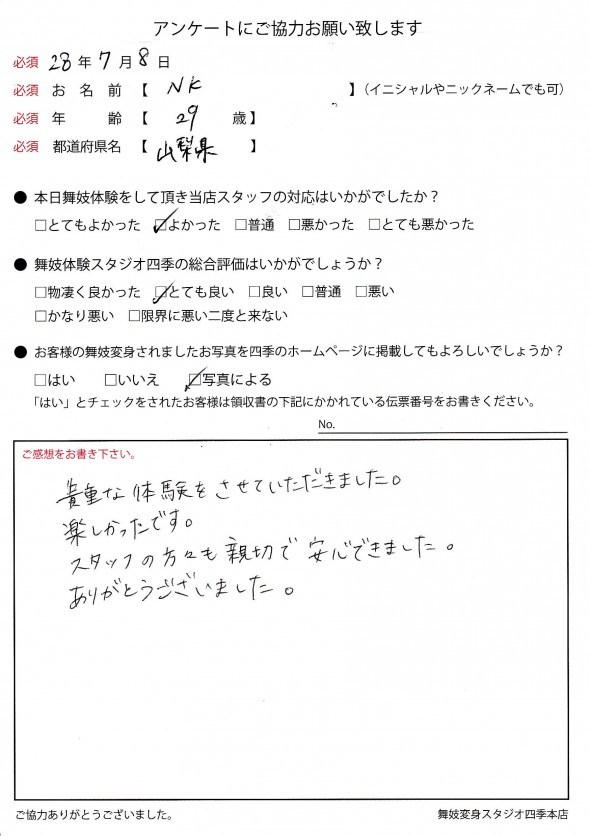 アンケートにご協力お願い致します
必須 28年7月8日
必須 お名前【 NK 】(イニシャルやニックネームでも可)
必須 年齢【 29 歳】
必須 都道府県名【 山梨県 】
● 本日舞妓体験をして頂き当店スタッフの対応はいかがでしたか？
□とてもよかった ☑よかった □普通 □悪かった □とても悪かった
● 舞妓体験スタジオ四季の総合評価はいかがでしょうか？
□物凄く良かった ☑とても良い □良い □普通 □悪い
□かなり悪い □限界に悪い二度と来ない
● お客様の舞妓変身されましたお写真を四季のホームページに掲載してもよろしいでしょうか？
□はい □いいえ ☑写真による
「はい」とチェックをされたお客様は領収書の下記にかかれている伝票番号をお書きください。
No.
ご感想をお書き下さい。
貴重な体験をさせていただきました。
楽しかったです。
スタッフの方々も親切で安心できました。
ありがとうございました。
ご協力ありがとうございました。
舞妓変身スタジオ四季本店